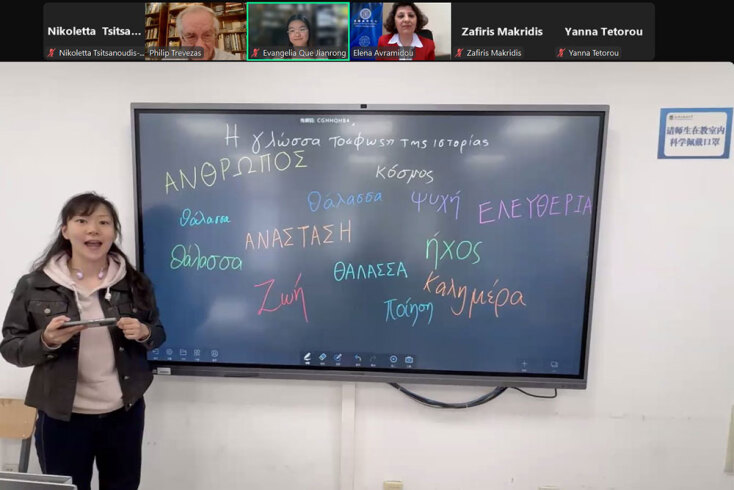 Nikoletta Tsitsa...
Zafiris Makridis
Yanna Tetorou
Nikoletta Tsitsanoudis-...
Philip Trevezas
Evangelia Que Jianrong
Elena Avramidou
Zafiris Makridis
Yanna Tetorou
Η γλώσσα το φως της ιστορίας
ΑΝΘΡΩΠΟΣ
κόσμος
θάλασσα
θάλασσα
ψυχή
ΕΛΕΥΘΕΡΙΑ
θάλασσα
ΑΝΑΣΤΑΣΗ
ήχος
ΘΑΛΑΣΣΑ
Ζωή
ποίηση
καλημέρα
请师生在教室内
科学佩戴口罩